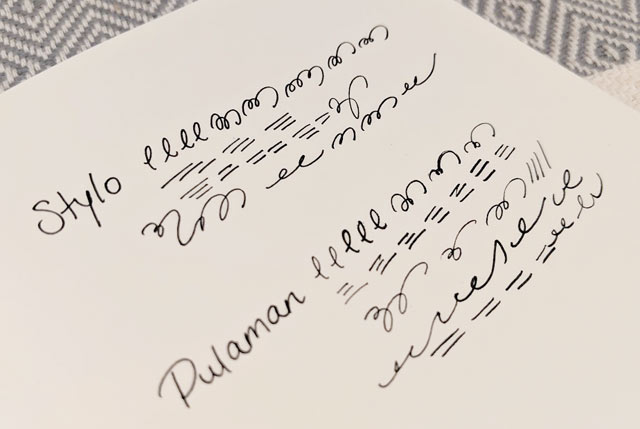 Stylo
Pulaman